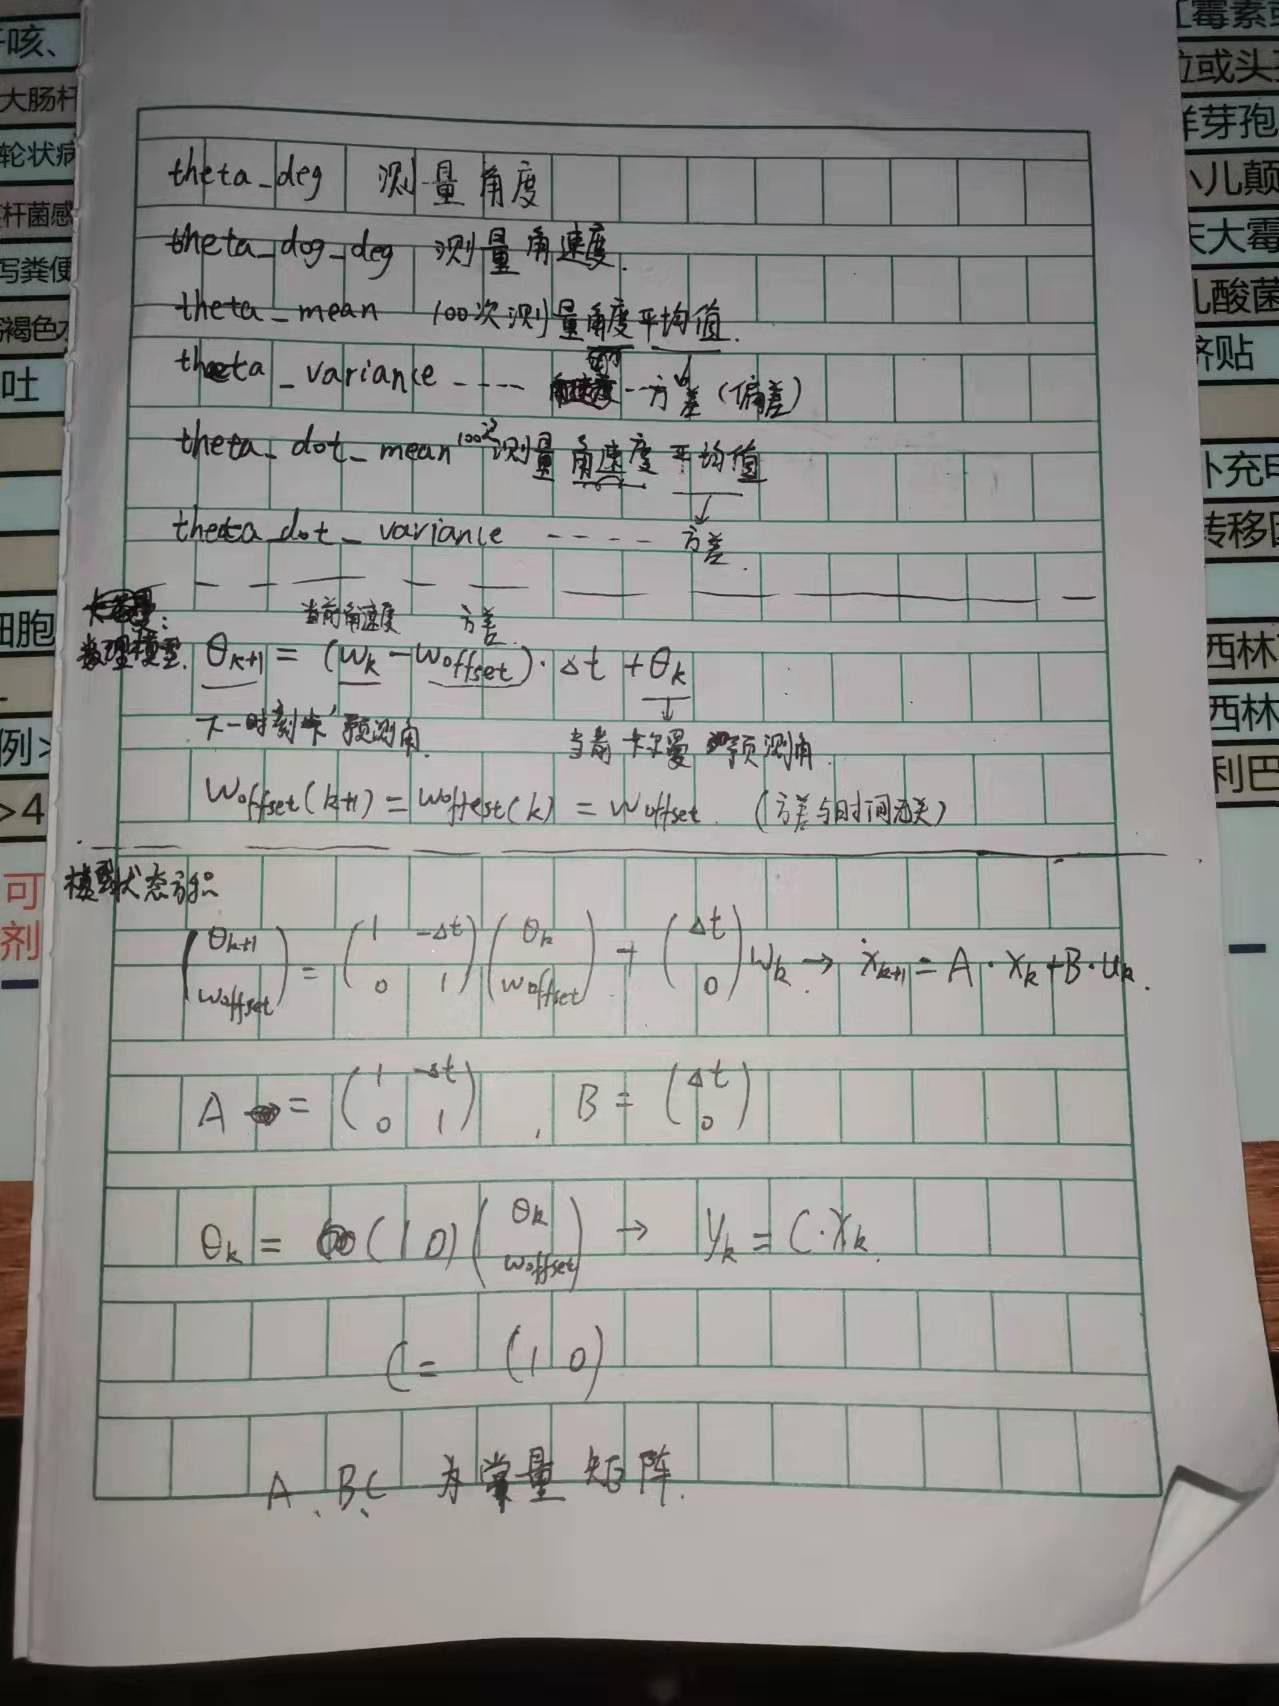 干咳、
大肠杆
轮状病
杆菌感
泻粪便
褐色水
吐
细胞
例>
>4
可
剂
theta_deg 测量角度
theta_dog_deg 测量角速度.
theta_mean 100次测量角度平均值.
theta_variance ---- --方差(偏差)
theta_dot_mean 100次测量角速度平均值
theta_dot_variance ---- 方差.
当前角速度 方差.
数理模型. θk+1 = (wk - woffset)·Δt + θk
下一时刻卡 预测角. 当前卡尔曼预测角.
woffset(k+1) = woffest(k) = woffset. (方差与时间无关)
模型状态方程
(θk+1 woffset) = (1 -Δt 0 1)(θk woffset) + (Δt 0)wk → ẋk+1 = A·xk+B·uk.
A = (1 -Δt 0 1), B = (Δt 0)
θk = (1 0)(θk woffset) → yk = C·xk.
C = (1 0)
A、B、C 为常量矩阵.
霉素
位或头
芽孢
小儿颠
大霉
乳酸菌
脐贴
补充
转移
西林
西林
利巴